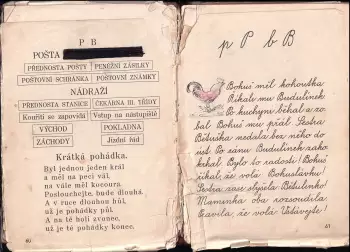 P B
POŠTA
PŘEDNOSTA POŠTY PENĚŽNÍ ZÁSILKY
POŠTOVNÍ SCHRÁNKA POŠTOVNÍ ZNÁMKY
NÁDRAŽÍ
PŘEDNOSTA STANICE ČEKÁRNA III. TŘÍDY
Kouřiti se zapovídá Vstup na nástupiště
VÝCHOD POKLADNA
ZÁCHODY Jízdní řád
Krátká pohádka.
Byl jednou jeden král
a měl na peci vál,
na vále měl kocoura.
Poslouchejte, bude dlouhá.
A v ruce dlouhou hůl,
už je pohádky půl.
A na té holi zvonec,
už je pohádky konec.
40
p P b B
Bohuš měl kohoutka
Říkali mu Budulínek
Po kuchyni běhal a zo-
bal Bohuš mu přál. Sestra
Bětuška nedala bez něho do
úst. Po ránu Budulínek zako-
krhal. Bylo to radosti! Bohuš
říkal, že volá: Bohuslávku!
Sestra zase slyšela: Bětulinko!
Maminka oba rozsoudila
Pravila, že volá: Vstávejte!
41